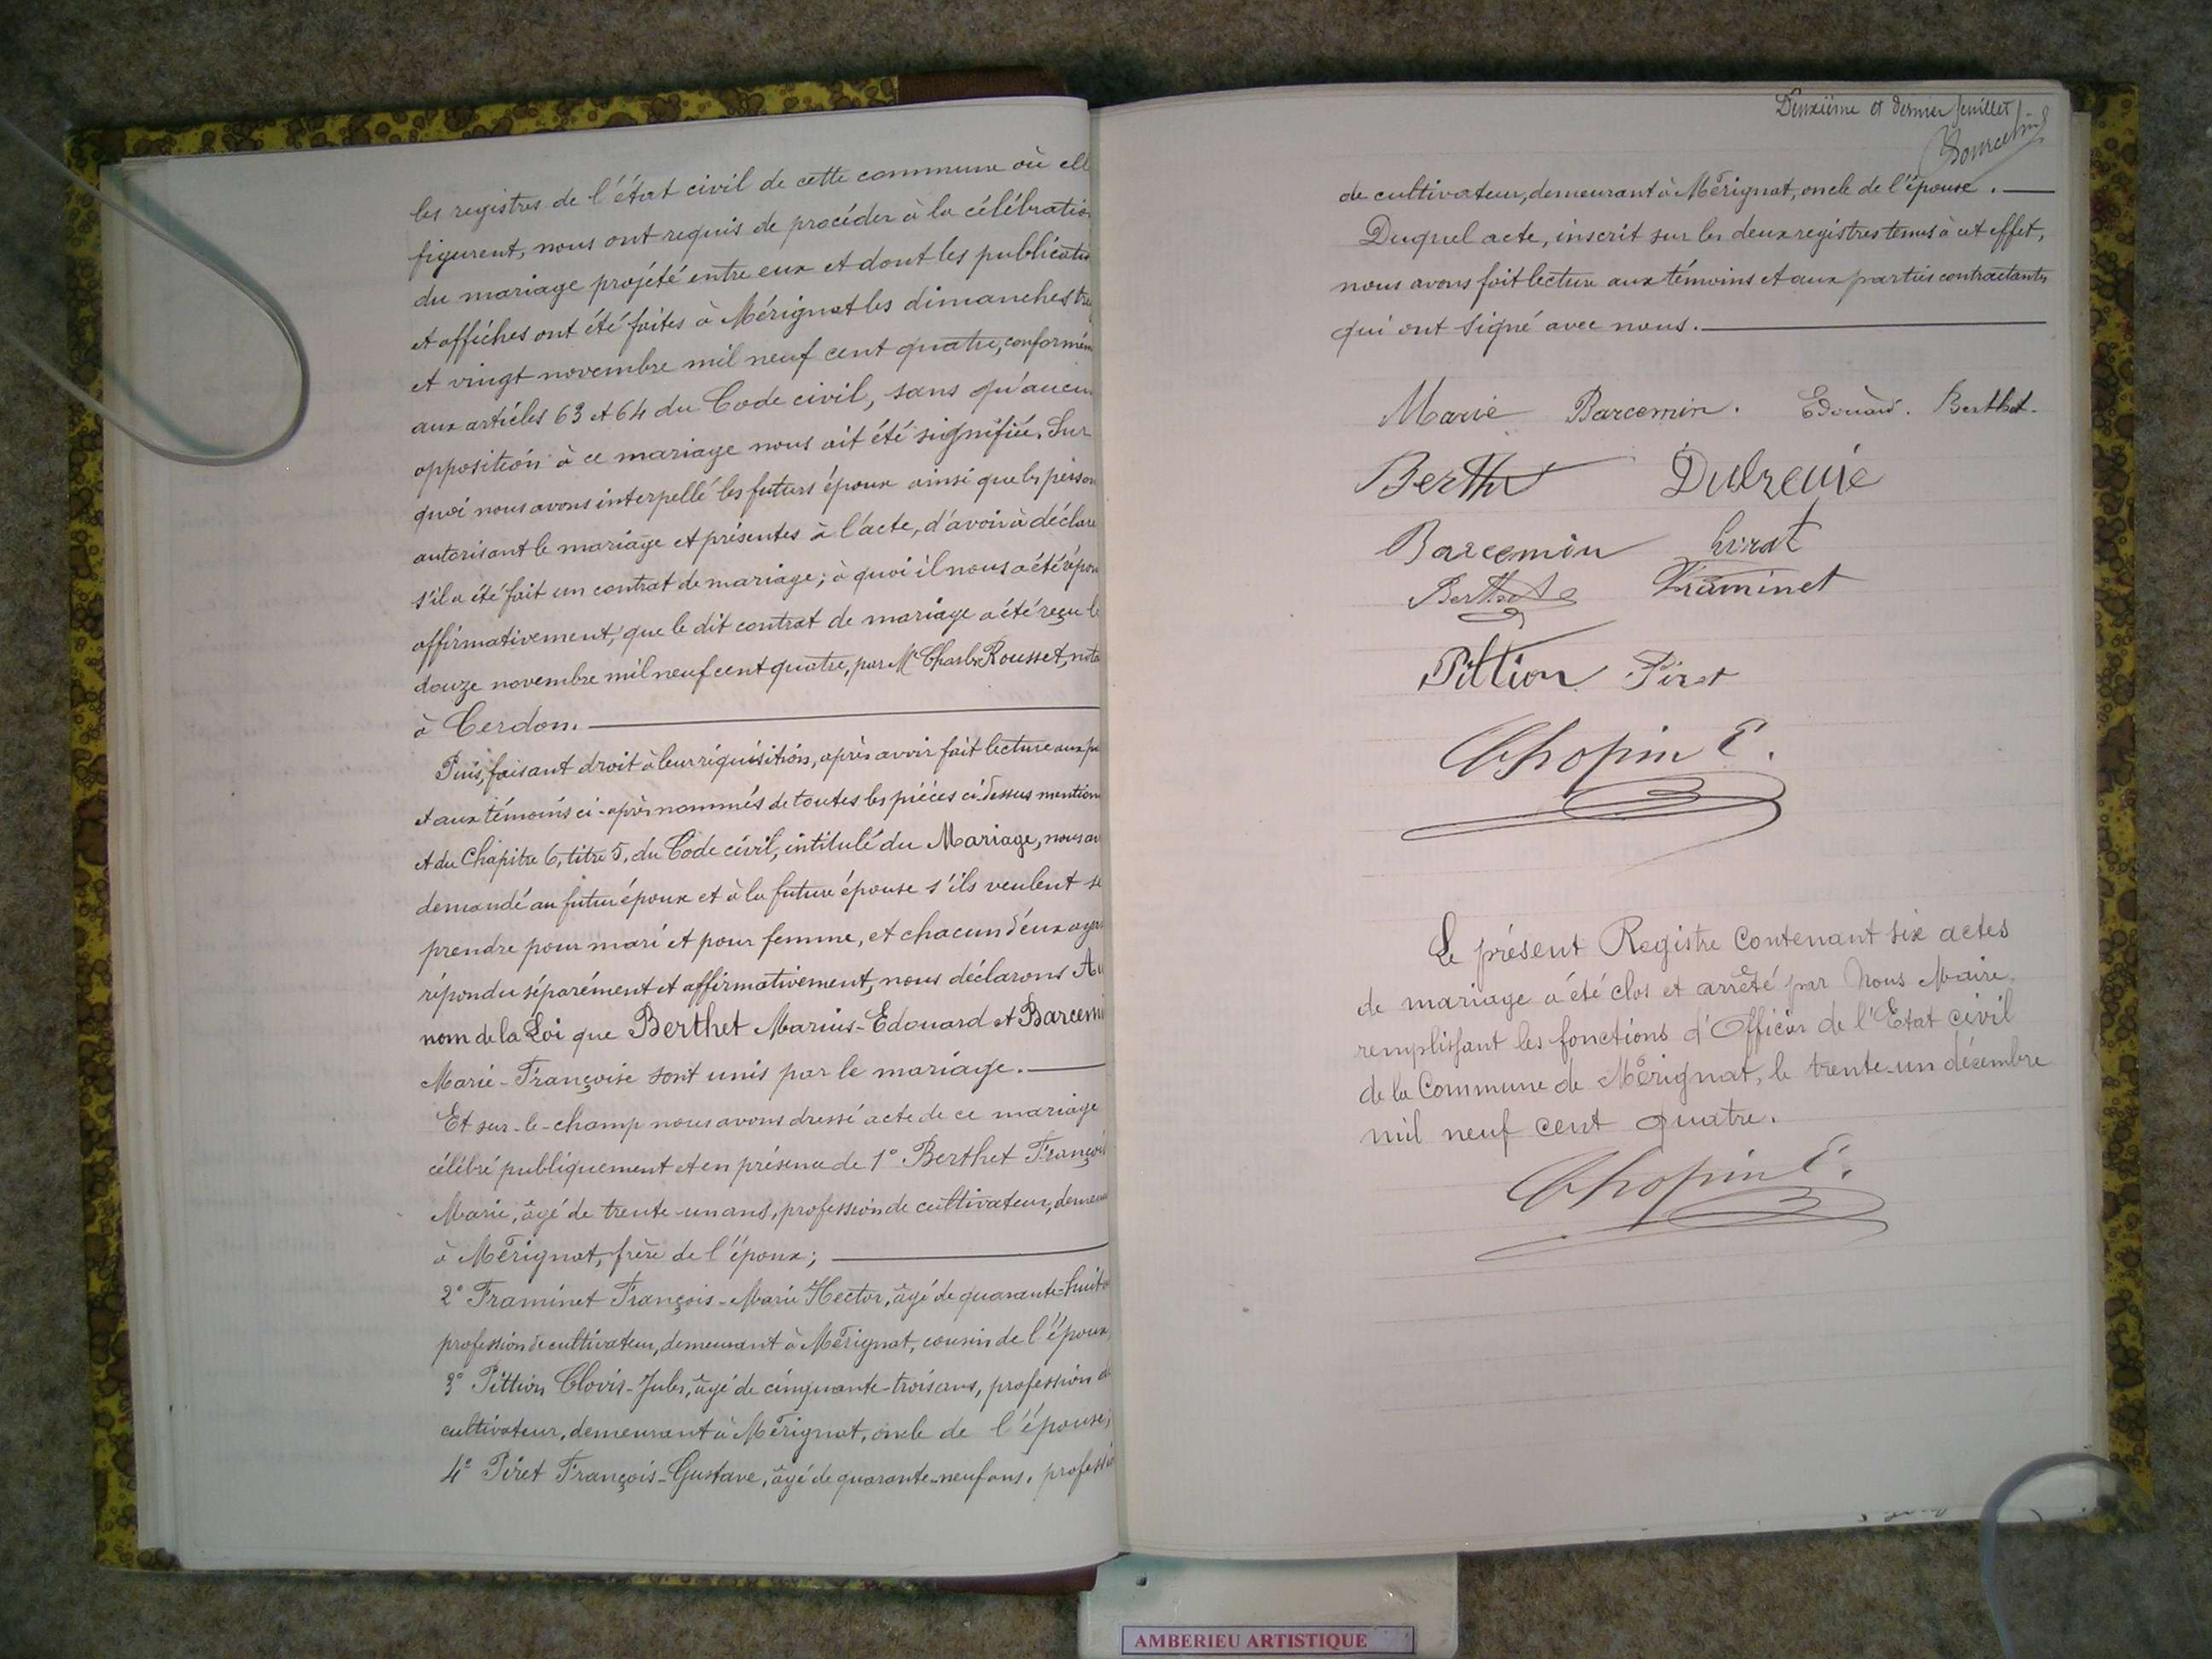 les registres de l'état civil de cette commune où ell
figurent, nous ont requis de procéder à la célébratio
du mariage projété entre eux et dont les publicatio
et affiches ont été faites à Mérignat les dimanches tre
et vingt novembre mil neuf cent quatre, conformém
aux articles 63 et 64 du Code civil, sans qu'aucun
opposition à ce mariage nous ait été signifiée. Sur
quoi nous avons interpellé les futurs époux ainsi que les person
autorisant le mariage et présentes à l'acte, d'avoir à déclare
s'il a été fait un contrat de mariage; à quoi il nous a été répon
affirmativement, que le dit contrat de mariage a été reçu le
douze novembre mil neuf cent quatre, par Me Charles Rousset, nota
à Cerdon.
Puis, faisant droit à leur réquisition, après avoir fait lecture aux pa
et aux témoins ci-après nommés de toutes les pièces ci-dessus mention
et du Chapitre 6, titre 5, du Code civil, intitulé du Mariage, nous av
demandé au futur époux et à la future épouse s'ils veulent se
prendre pour mari et pour femme, et chacun d'eux ayan
répondu séparément et affirmativement, nous déclarons Au
nom de la Loi que Berthet Marius-Edouard et Barcemi
Marie-Françoise sont unis par le mariage.
Et sur-le-champ nous avons dressé acte de ce mariage
célébré publiquement et en présence de 1° Berthet François
Marie, âgé de trente-un ans, profession de cultivateur, demeu
à Mérignat, frère de l'époux;
2° Framinet François-Marie Hector, âgé de quarante-huit a
profession de cultivateur, demeurant à Mérignat, cousin de l'époux
3° Pittion Clovis-Jules, âgé de cinquante-trois ans, profession de
cultivateur, demeurant à Mérignat, oncle de l'épouse;
4° Piret François-Gustave, âgé de quarante-neuf ans, professio
Deuxième et dernier feuillet
de cultivateur, demeurant à Mérignat, oncle de l'épouse.
Duquel acte, inscrit sur les deux registres tenus à cet effet,
nous avons fait lecture aux témoins et aux parties contractantes
qui ont signé avec nous.
Marie Barcemin. Edouard. Berthet.
Berthet
Barcemin
Berthet Framinet
Pittion Piret
Chopin E.
Le présent Registre contenant six actes
de mariage a été clos et arrêté par Nous Maire,
remplissant les fonctions d'Officier de l'Etat civil
de la Commune de Mérignat, le trente-un décembre
mil neuf cent quatre.
Chopin E.
AMBERIEU ARTISTIQUE